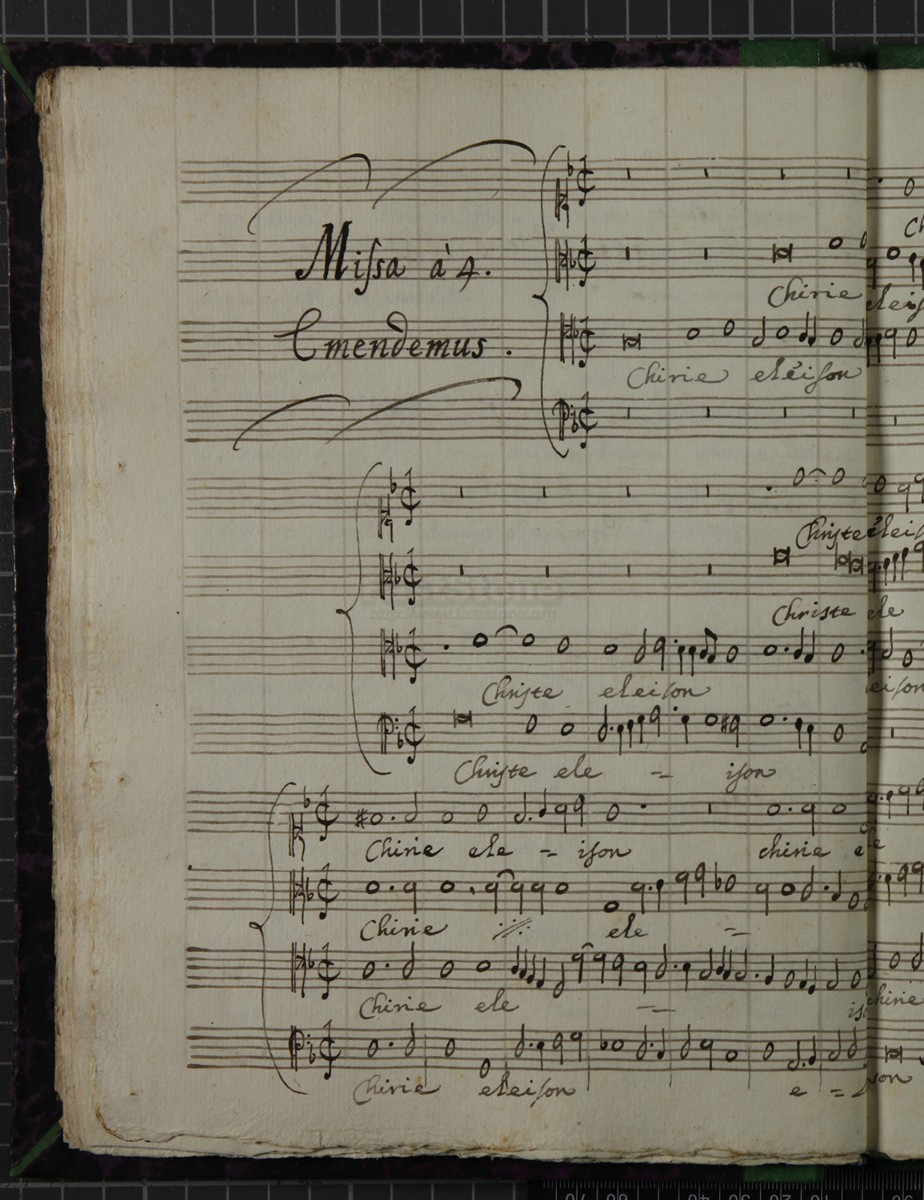 Missa à 4.
Emendemus.
Ch
Chirie eleis
Chirie eleison
Christe eleis
Christe ele
Christe eleison eison
Christe ele = ison
Chirie ele = ison chirie ele
Chirie :/: ele =
Chirie ele = is chirie
Chirie eleison e = son